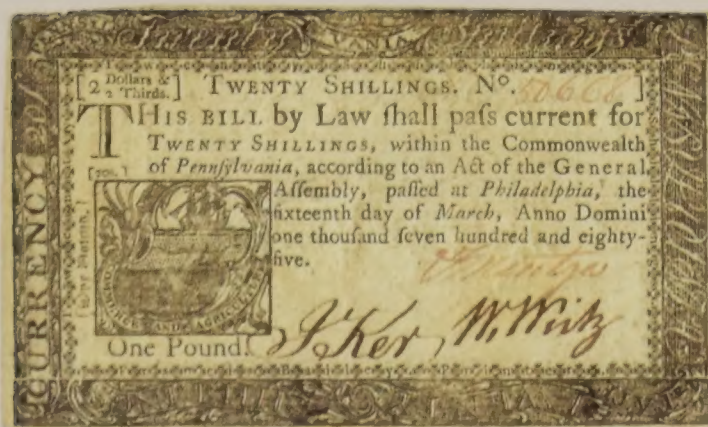 Twenty Shillings
[2 Dollars & 2 Thirds.] TWENTY SHILLINGS. Nº. 50668 ]
THIS BILL by Law ſhall paſs current for
TWENTY SHILLINGS, within the Commonwealth
of Pennſylvania, according to an Act of the General
Aſſembly, paſſed at Philadelphia, the
ſixteenth day of March, Anno Domini
one thouſand ſeven hundred and eighty-
five.
[20s.]
COMMERCE AND AGRICULTURE
One Pound.
J Ker W. Wirtz
CURRENCY 20ſ